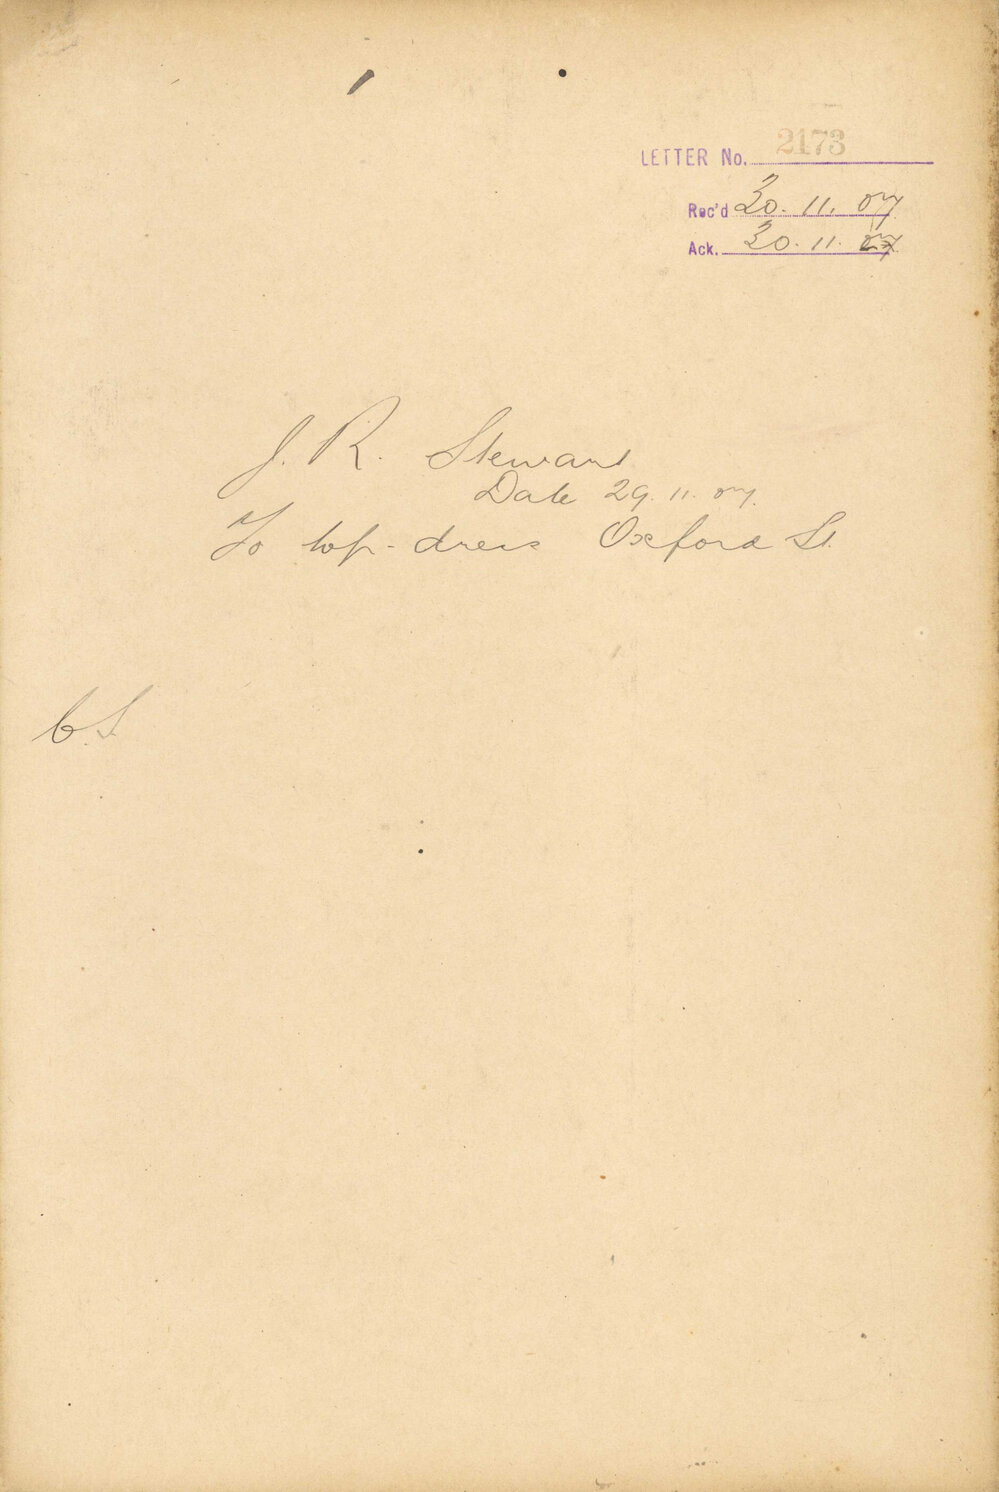 LETTER No. 2173
Rec'd 30. 11. 07
Ack. 30. 11. 07
J. R. Stewart
Date 29. 11. 07.
To top-dress Oxford St.
C.S.